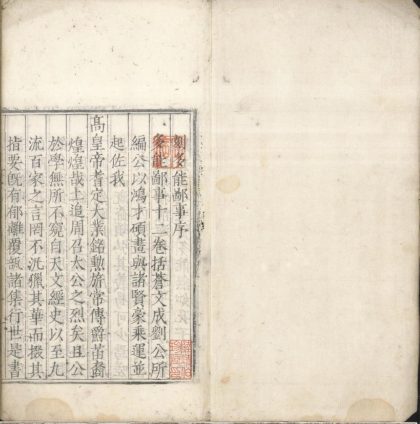 刻多能鄙事序
多能鄙事十二卷括蒼文成劉公所
編公以鴻才碩畫與諸賢豪乘運並
起佐我
高皇帝耆定大業銘勲旂常傳爵苗裔
煌煌哉上追周召太公之烈矣且公
於學無所不窺自天文經史以至九
流百家之言罔不汎獵其華而掇其
指要既有郁離覆瓿諸集行世是書